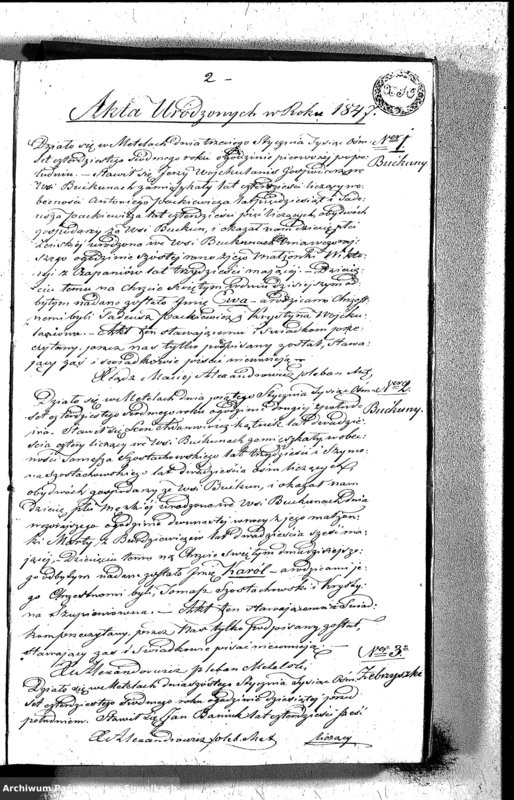 2 -
XIO
Akta Urodzonych w Roku 1847.
Działo się w Metelach dnia trzeciego Stycznia tysiąc Ośm-
Nro 1
set czterdziestego siódmego roku o godzinie pierwszej po po-
Buckuny
łudniu. - Stawił się Jerzy Wojciulanis Gospodarz we
Wsi Buckunach zamieszkały lat czterdzieści liczący w o-
becności Antoniego Jackiewicza lat pięćdziesiąt i Tade-
usza Jackiewicza lat czterdzieści pięć liczących, obydwóch
gospodarzy ze Wsi Buckun, i okazał nam dziecię płci
żeńskiej urodzone we Wsi Buckunach dnia wczoraj-
szego o godzinie szóstej rano z jego małżonki Wikto-
ryi z Czaponiów lat trzydzieści mającej - Dziecię-
ciu temu na Chrzcie Świętym w dniu dzisiejszym od-
bytym nadane zostało Imię Ewa - a rodzicami Chrzest-
nemi byli Tadeusz Jackiewicz i Krystyna Wojciu-
laniowa - Akt ten stawającemu i świadkom prze-
czytany, przez nas tylko podpisany został, Stawa-
jący zaś i świadkowie pisać nieumieją -
Xiądz Maciej Alexandrowicz pleban Met.
Działo się w Metelach dnia piątego Stycznia tysiąc Ośm-
Nro 2.
set czterdziestego siódmego roku o godzinie drugiej z połud-
Buckuny.
nia. Stawił się Jan lat dwadzie-
ścia cztery liczący we Wsi Buckunach zamieszkały w obec-
ności Tomasza Szostachowskiego lat trzydzieści i Szymo-
na Szostachowskiego lat dwadzieścia ośm liczących
obydwóch gospodarzy ze Wsi Buckun, i okazał nam
Dziecię płci męskiej urodzone we Wsi Buckunach dnia
wczorajszego o godzinie dwunastej w nocy z jego małżon-
ki Marty z Burdziewiczów lat dwadzieścia sześć ma-
jącej. - Dziecięciu temu na Chrzcie Świętym dnia dzisiejsze-
go odbytym nadane zostało Imię Karól - a rodzicami je-
go Chrzestnemi byli Tomasz Szostachowski i Krysty-
na - Akt ten stawającemu i Świad-
kom przeczytany, przez Nas tylko podpisany został,
Stawający zaś i Świadkowie pisać nieumieją -
X. M. Alexandrowicz pleban Metelski.
Nro 3.
Działo się w Metelach dnia szóstego Stycznia tysiąc Ośm-
Zebrzyszki
set czterdziestego siódmego roku o godzinie dziesiątej przed
południem. Stawił się Jan lat czterdzieści sześć
X. M. Alexandrowicz pleb. Met. liczący
Archiwum Państwowe w Suwałkach